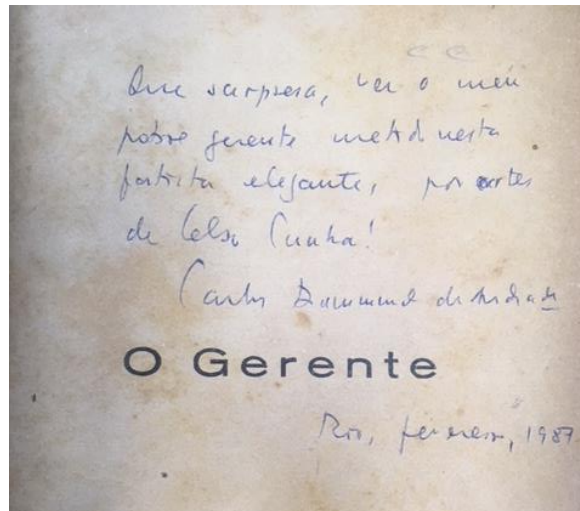 Que surpresa, ver o meu
pobre gerente metido nesta
elegante, por artes
de Celso Cunha!
Carlos Drummond de Andrade
O Gerente
Rio, fevereiro, 1987